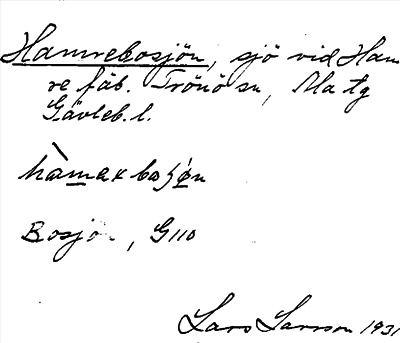 Hamrebosjön, sjö vid Ham
re fäb. Trönö sn, Ma tg
Gävleb. l.
hàmɐx bosjøn
Bosjön, G110
Lars Larsson 1931